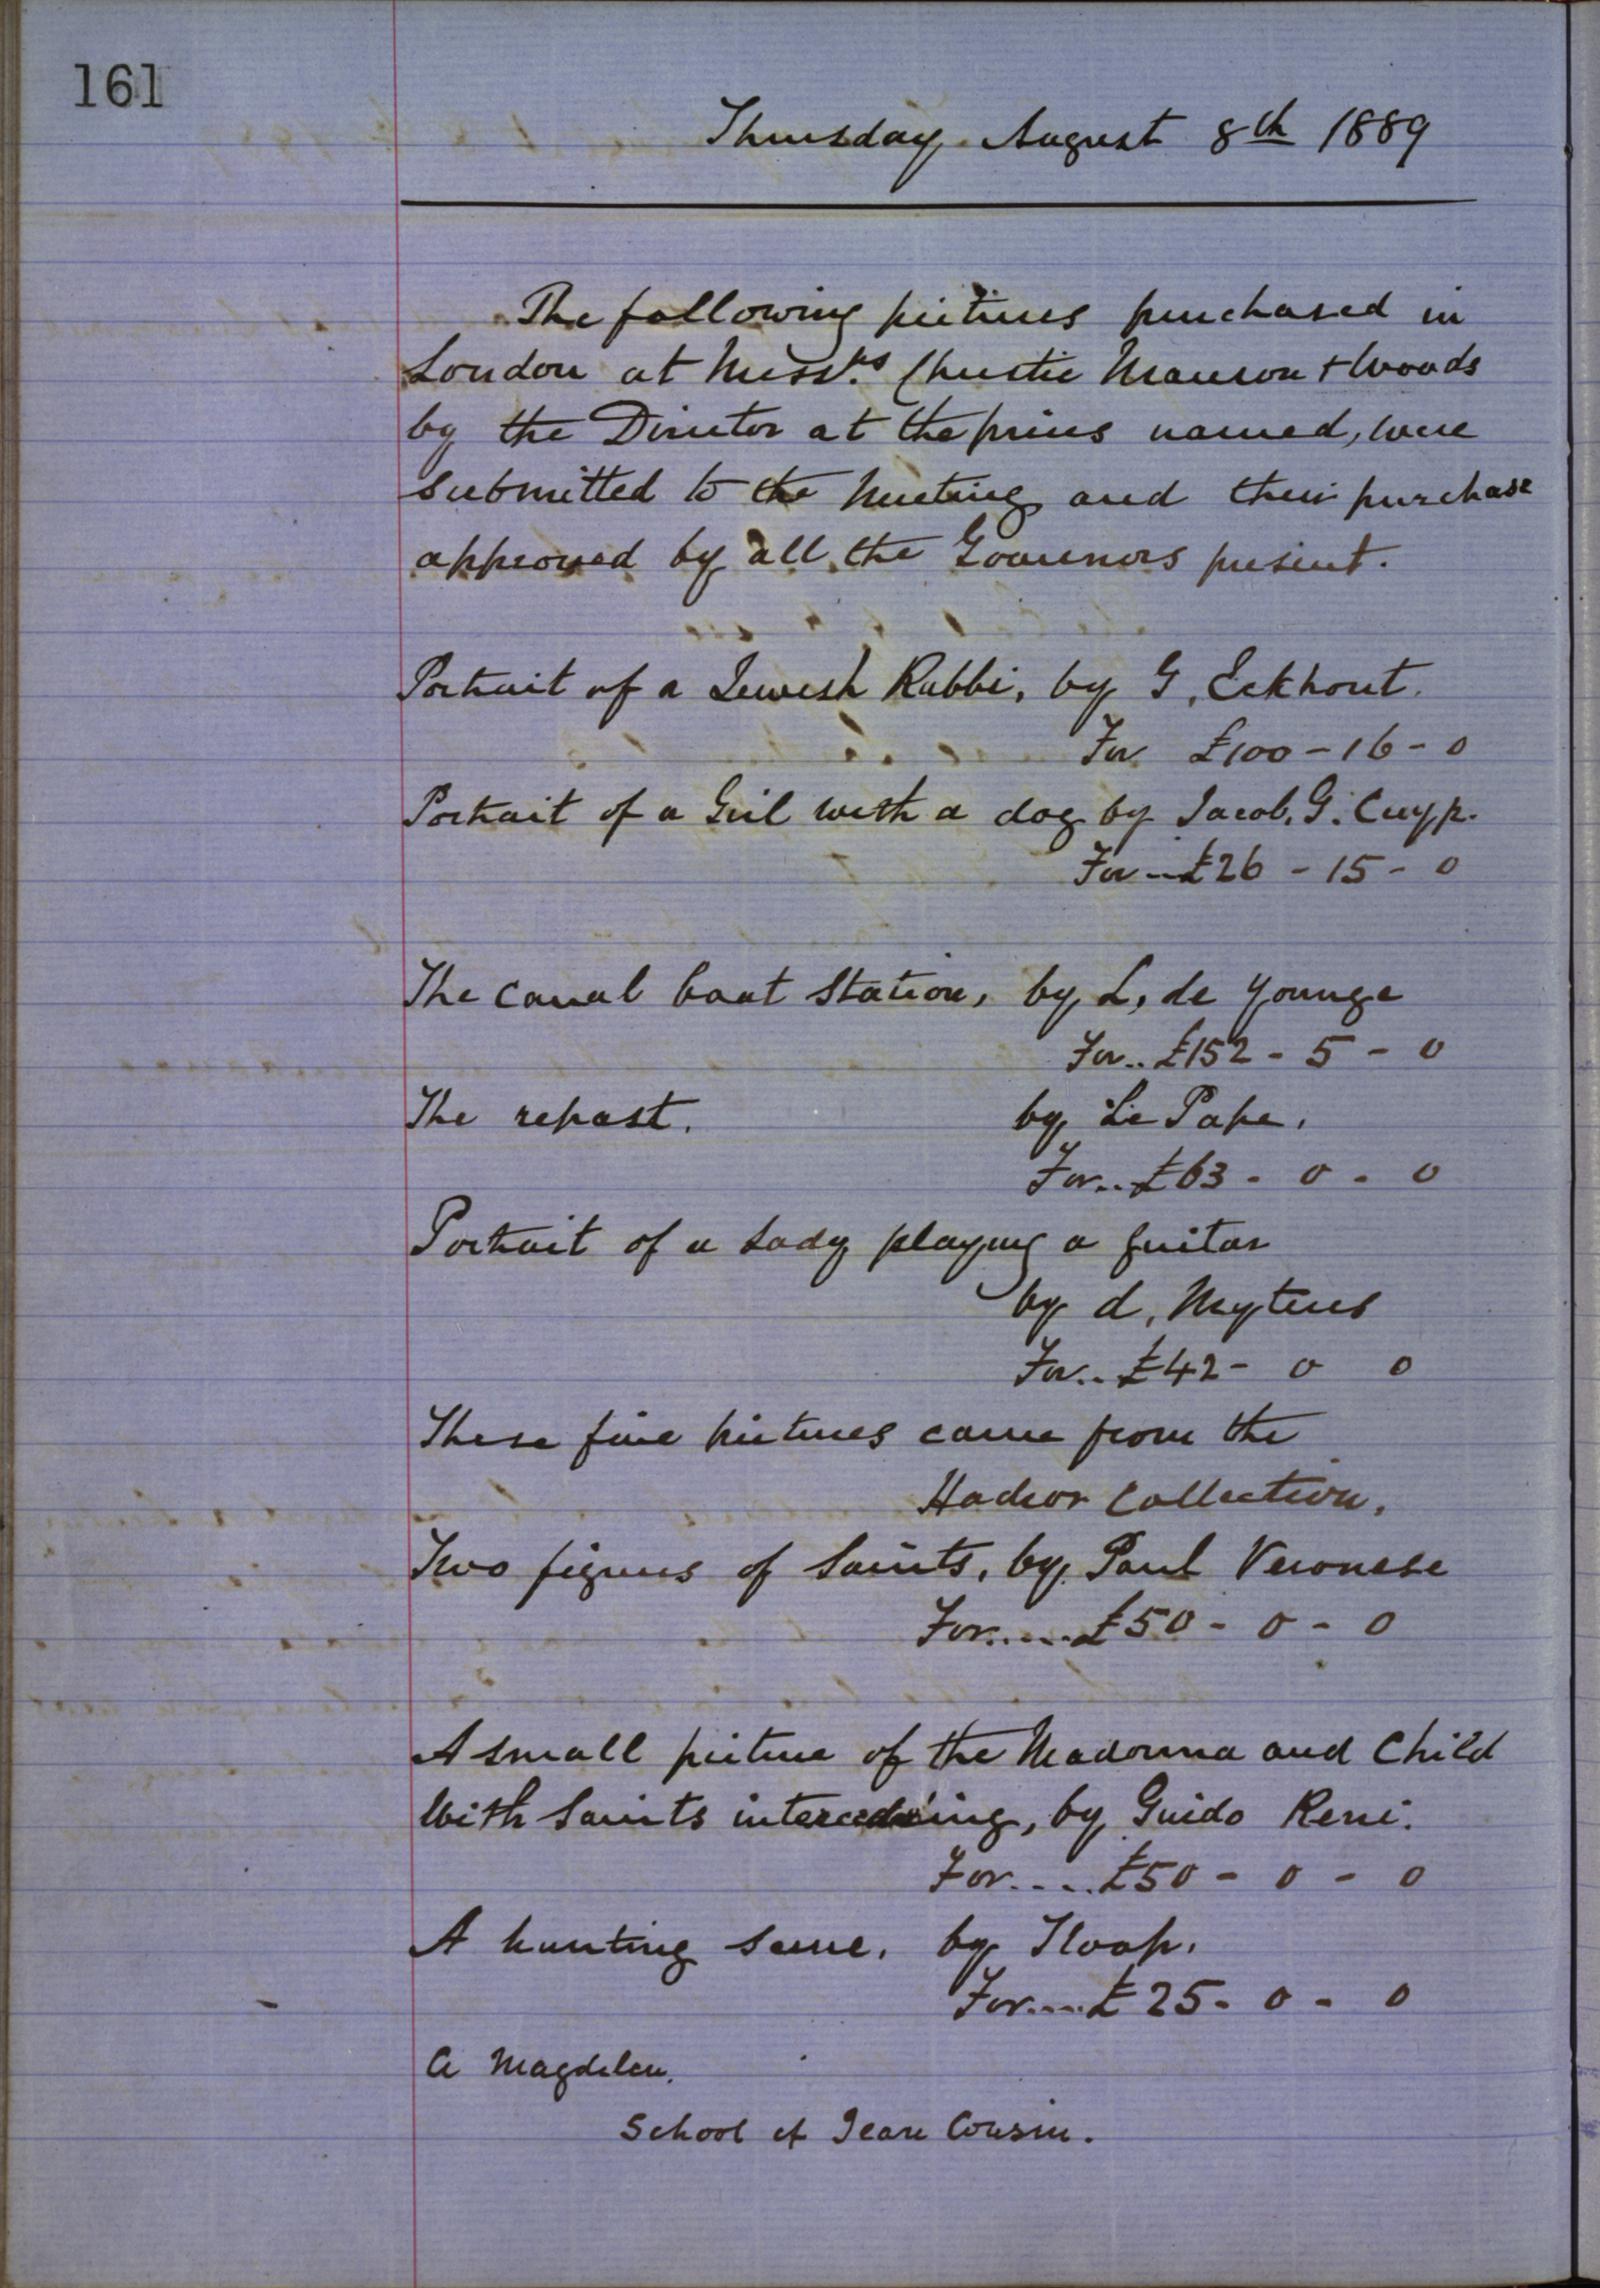 161
Thursday August 8th 1889
The following pictures purchased in
London at Messrs. Christie Manson + Woods
by the Director at the prices named, were
submitted to the Meeting and their purchase
approved by all the Governors present.
Portrait of a Jewish Rabbi, by G. Eckhout.
For £100 - 16 - 0
Portrait of a Girl with a dog by Jacob. G. Cuyp.
For... £26 - 15 - 0
The canal boat Station, by L, de Younge
For.. £152 - 5 - 0
The repast. by Le Pape.
For... £63 - 0 - 0
Portrait of a Lady playing a guitar
by d, Mytens
For.. £42 - 0 0
These five pictures came from the
Hadzor Collection.
Two figures of Saints, by Paul Veronese
For..... £50 - 0 - 0
A small picture of the Madonna and Child
With Saints interceding, by Guido Reni.
For.... £50 - 0 - 0
A hunting scene, by
For.... £25 - 0 - 0
A Magdalen.
School of Jean Cousin.